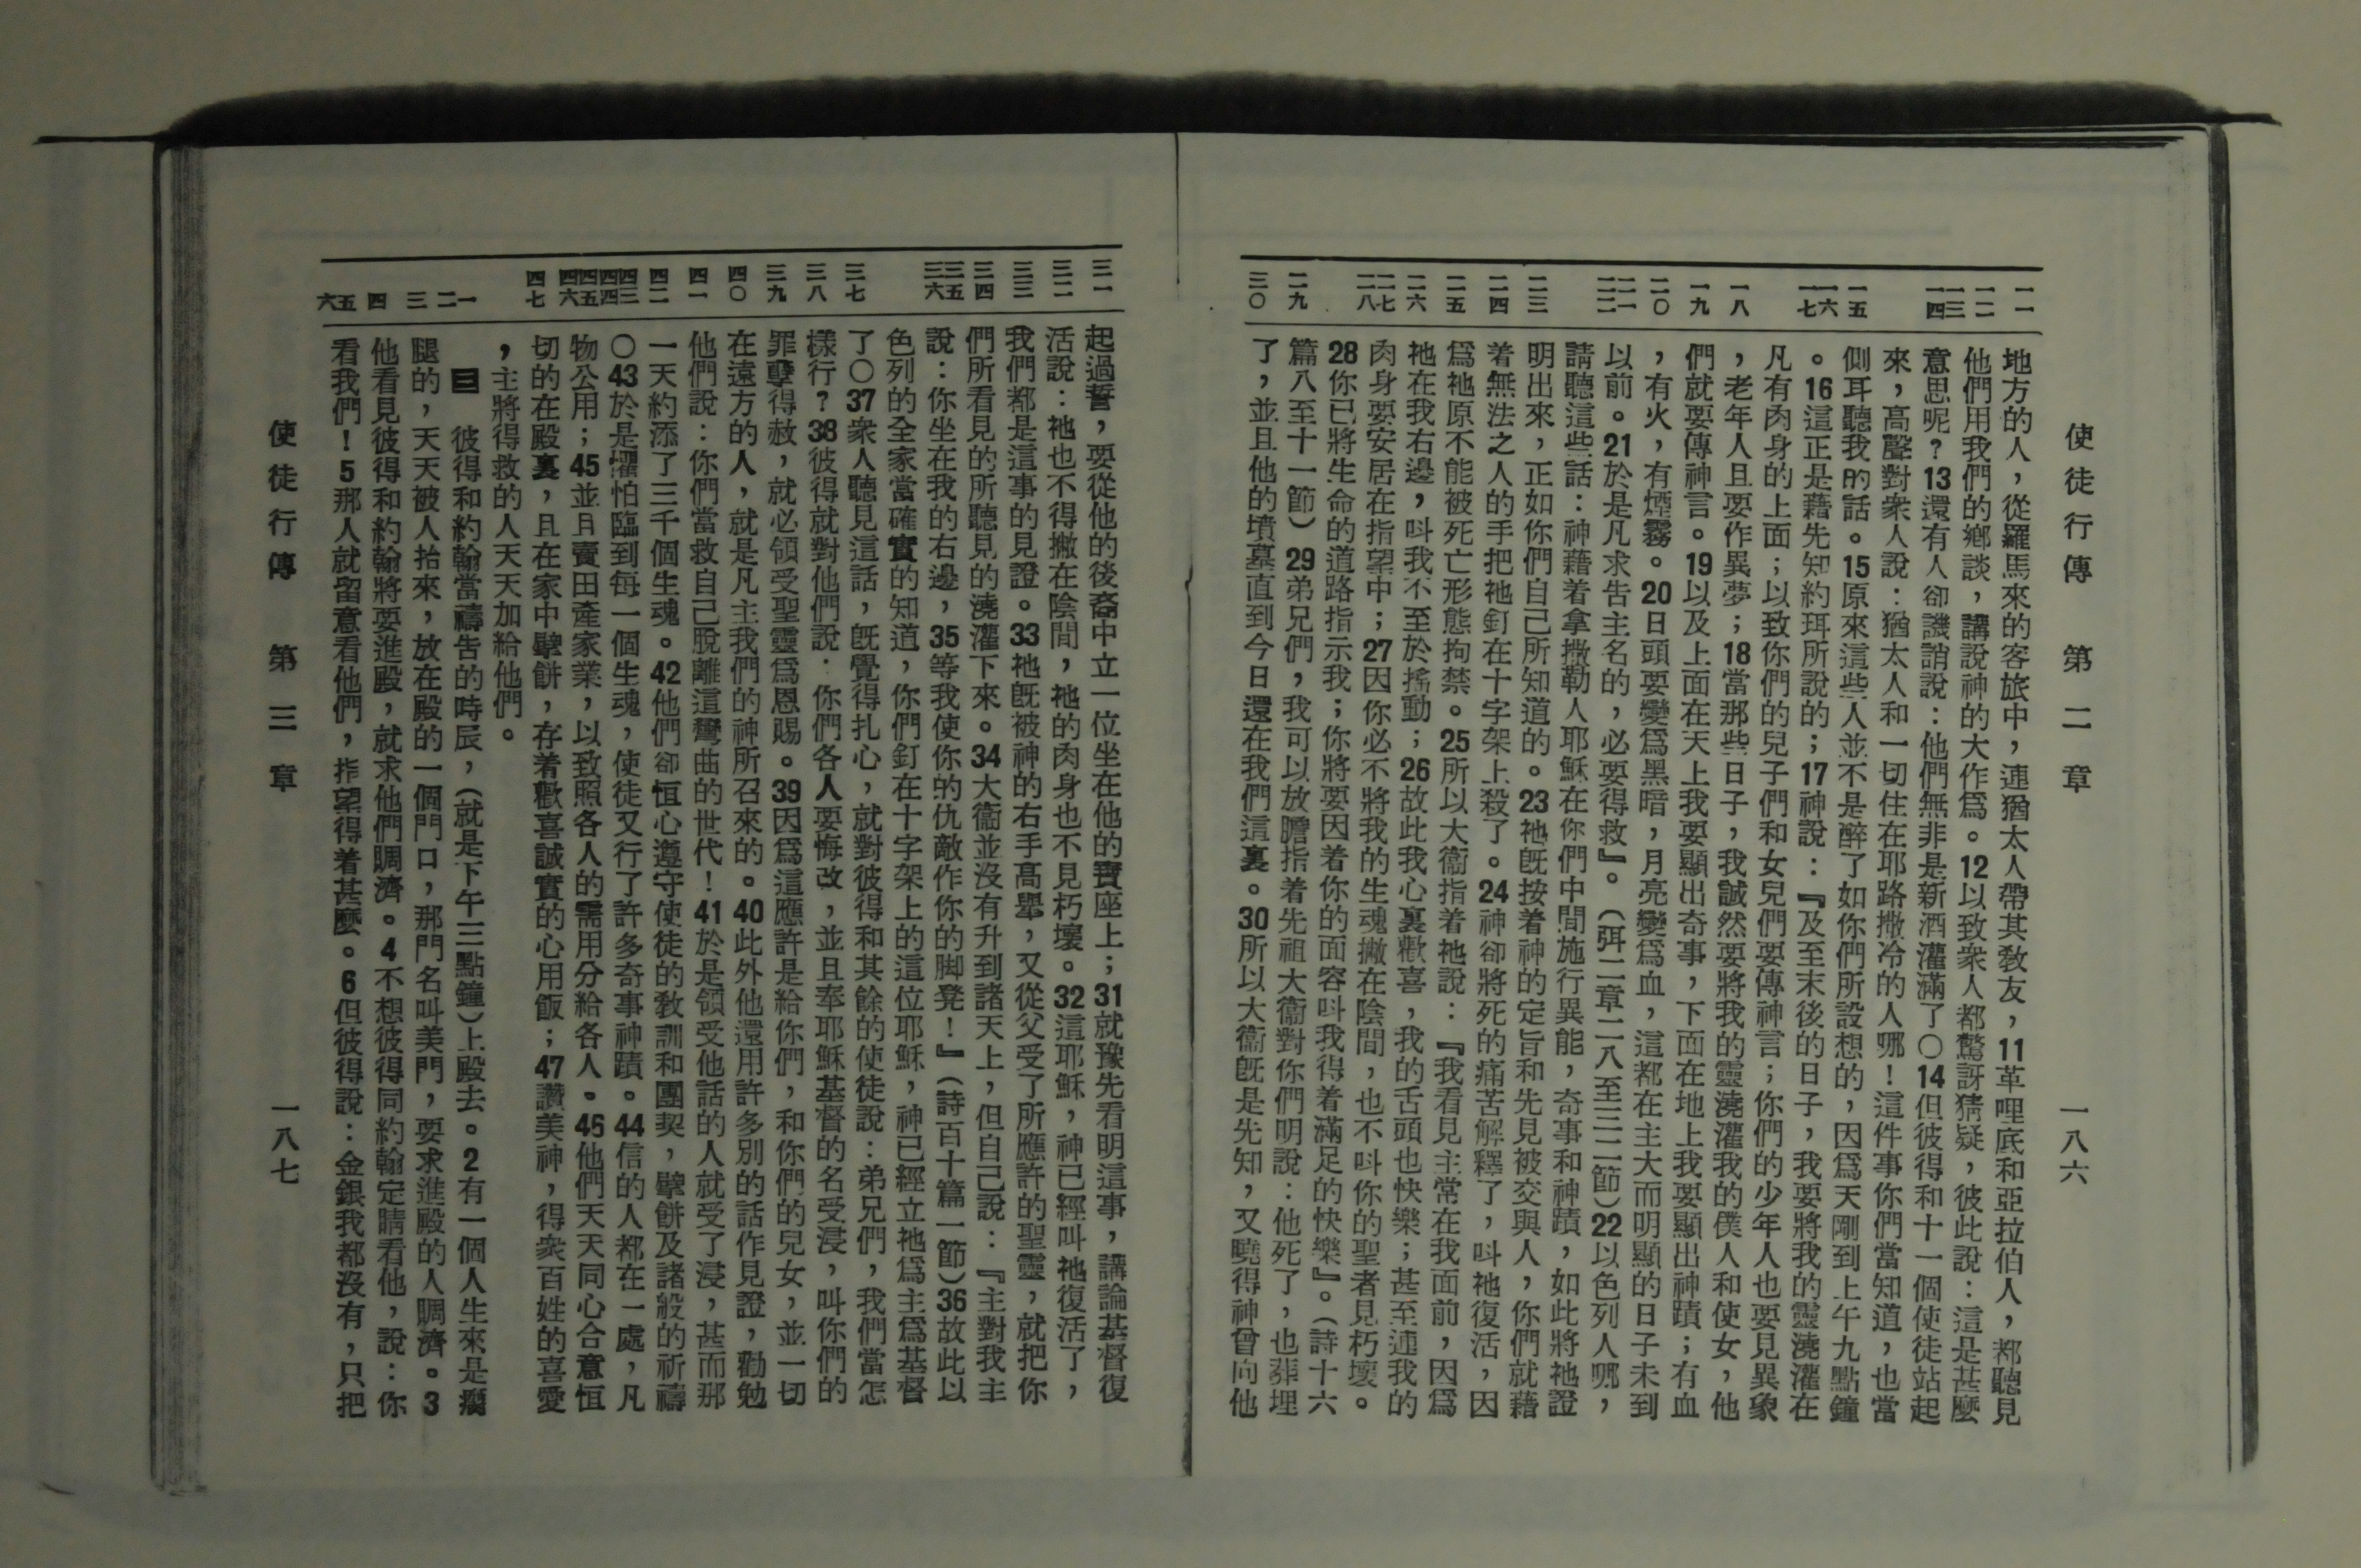 使徒行傳　第二章　一八六
一一　一二　一三　一四　一五　一六　一七　一八　一九　二〇　二一　二二　二三　二四　二五　二六　二七　二八　二九　三〇
地方的人，從羅馬來的客旅中，連猶太人帶其敎友，11革哩底和亞拉伯人，都聽見
他們用我們的鄉談，講說神的大作爲。12以致衆人都驚訝猜疑，彼此說：這是甚麼
意思呢？13還有人卻譏誚說：他們無非是新酒灌滿了〇14但彼得和十一個使徒站起
來，高聲對衆人說：猶太人和一切住在耶路撒冷的人哪！這件事你們當知道，也當
側耳聽我的話。15原來這些人並不是醉了如你們所設想的，因爲天剛到上午九點鐘
。16這正是藉先知約珥所說的；17神說：『及至末後的日子，我要將我的靈澆灌在
凡有肉身的上面；以致你們的兒子們和女兒們要傳神言；你們的少年人也要見異象
，老年人且要作異夢；18當那些日子，我誠然要將我的靈澆灌我的僕人和使女，他
們就要傳神言。19以及上面在天上我要顯出奇事，下面在地上我要顯出神蹟；有血
，有火，有煙霧。20日頭要變爲黑暗，月亮變爲血，這都在主大而明顯的日子未到
以前。21於是凡求告主名的，必要得救』。（珥二章二八至三二節）22以色列人哪，
請聽這些話：神藉着拿撒勒人耶穌在你們中間施行異能，奇事和神蹟，如此將祂證
明出來，正如你們自己所知道的。23祂旣按着神的定旨和先見被交與人，你們就藉
着無法之人的手把祂釘在十字架上殺了。24神卻將死的痛苦解釋了，叫祂復活，因
爲祂原不能被死亡形態拘禁。25所以大衞指着祂說：『我看見主常在我面前，因爲
祂在我右邊，叫我不至於搖動；26故此我心裏歡喜，我的舌頭也快樂；甚至連我的
肉身要安居在指望中；27因你必不將我的生魂撇在陰間，也不叫你的聖者見朽壞。
28你已將生命的道路指示我；你將要因着你的面容叫我得着滿足的快樂』。（詩十六
篇八至十一節）29弟兄們，我可以放膽指着先祖大衞對你們明說：他死了，也葬埋
了，並且他的墳墓直到今日還在我們這裏。30所以大衞旣是先知，又曉得神曾向他
三一　三二　三三　三四　三五　三六　三七　三八　三九　四〇　四一　四二　四三　四四　四五　四六　四七　一　二　三　四　五　六
起過誓，要從他的後裔中立一位坐在他的寶座上；31就豫先看明這事，講論基督復
活說：祂也不得撇在陰間，祂的肉身也不見朽壞。32這耶穌，神已經叫祂復活了，
我們都是這事的見證。33祂旣被神的右手高舉，又從父受了所應許的聖靈，就把你
們所看見的所聽見的澆灌下來。34大衞並沒有升到諸天上，但自己說：『主對我主
說：你坐在我的右邊，35等我使你的仇敵作你的脚凳！』（詩百十篇一節）36故此以
色列的全家當確實的知道，你們釘在十字架上的這位耶穌，神已經立祂爲主爲基督
了〇37衆人聽見這話，旣覺得扎心，就對彼得和其餘的使徒說：弟兄們，我們當怎
樣行？38彼得就對他們說：你們各人要悔改，並且奉耶穌基督的名受浸，叫你們的
罪孽得赦，就必領受聖靈爲恩賜。39因爲這應許是給你們，和你們的兒女，並一切
在遠方的人，就是凡主我們的神所召來的。40此外他還用許多別的話作見證，勸勉
他們說：你們當救自己脫離這彎曲的世代！41於是領受他話的人就受了浸，甚而那
一天約添了三千個生魂。42他們卻恒心遵守使徒的敎訓和團契，擘餅及諸般的祈禱
〇43於是懼怕臨到每一個生魂，使徒又行了許多奇事神蹟。44信的人都在一處，凡
物公用；45並且賣田產家業，以致照各人的需用分給各人。46他們天天同心合意恒
切的在殿裏，且在家中擘餅，存着歡喜誠實的心用飯；47讚美神，得衆百姓的喜愛
，主將得救的人天天加給他們。
三　彼得和約翰當禱告的時辰，（就是下午三點鐘）上殿去。2有一個人生來是瘸
腿的，天天被人抬來，放在殿的一個門口，那門名叫美門，要求進殿的人賙濟。3
他看見彼得和約翰將要進殿，就求他們賙濟。4不想彼得同約翰定睛看他，說：你
看我們！5那人就留意看他們，指望得着甚麼。6但彼得說：金銀我都沒有，只把
使徒行傳　第三章　一八七